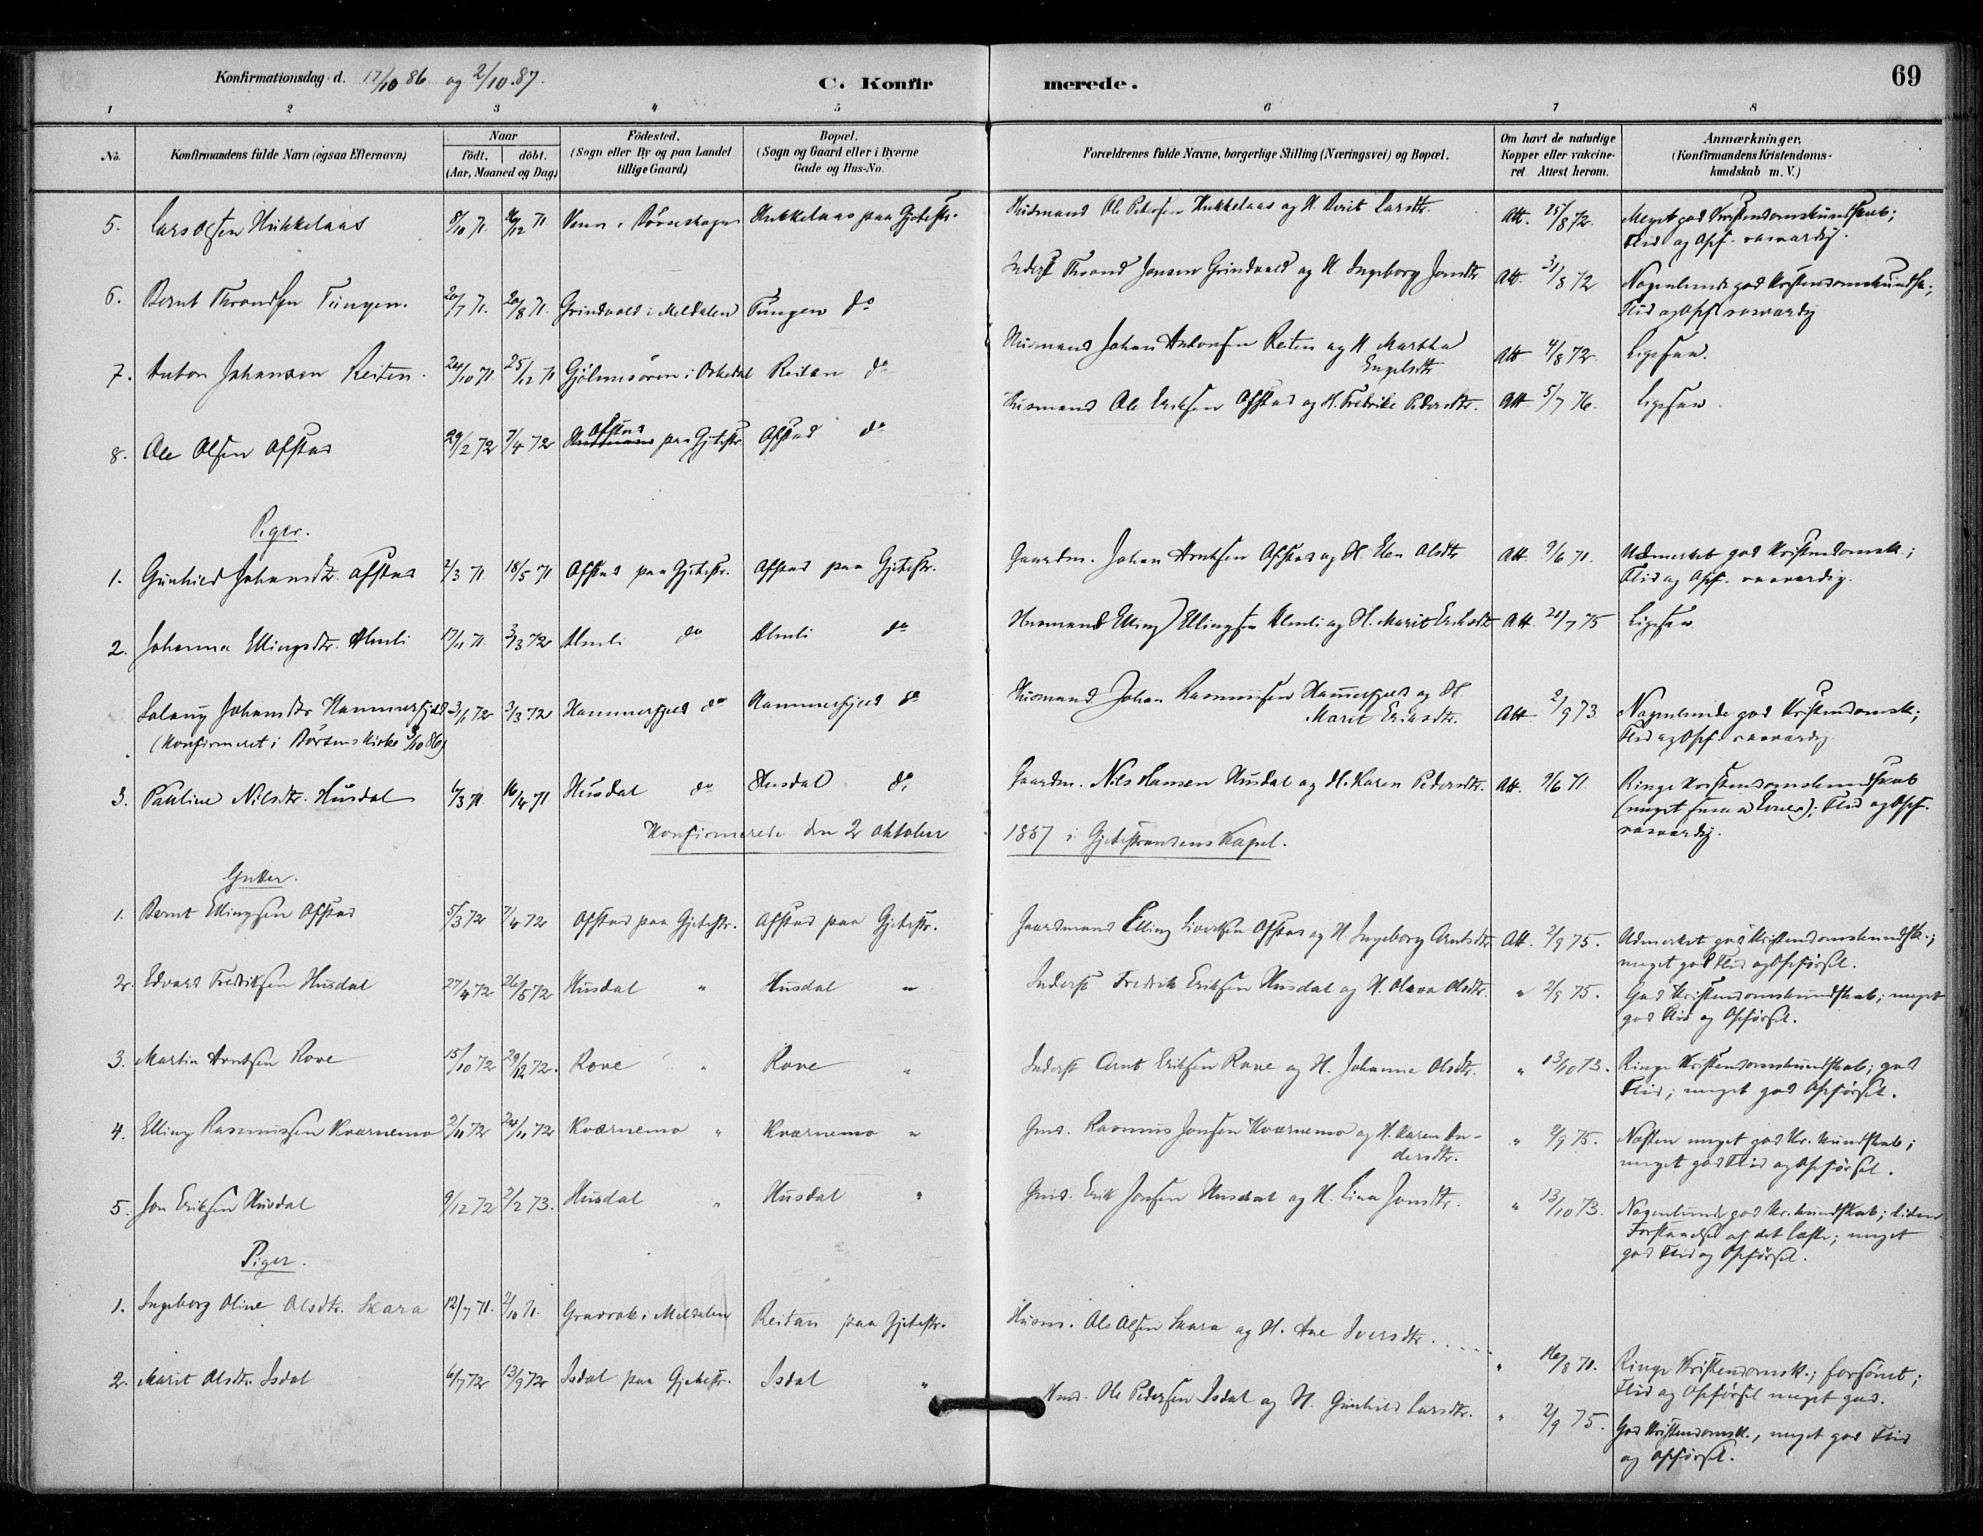 Konfirmationsdag d. 17/10 86. og 2/10.87.
C. Konfirmerede.
69
1 2 3 4 5 6 7 8
No. Konfirmandens fulde Navn (ogsaa Efternavn) Naar födt. döbt. (Aar, Maaned og Dag) Födested. (Sogn eller By og paa Landet tillige Gaard) Bopæl. (Sogn og Gaard eller i Byerne Gade og Hus-No. Forældrenes fulde Navne, borgerlige Stilling (Næringsvei) og Bopæl. Om havt de naturlige Kopper eller vakcineret Attest herom. Anmærkninger, (Konfirmandens Kristendomskundskab m. V.)
5. Lars Olsen Hukkelaas 8/10 71. 26/12 71 i Børseskogn Hukkelaas paa Gjetestr. Husmand Ole Pedersen Hukkelaas og H. Berit Larsdtr. Att. 25/8 72. Meget god Kristendomskundskab;
Flid og Opf. rosværdig.
6. Bernt Throndsen Tungen. 20/7 71. 20/8 71. Grindvold i Meldalen Tungen do Inderst Thrond Jonsen Grindvold og H. Ingeborg Jonsdtr Att. 31/8 72 Nogenlunde god Kristendomskundsk.;
Flid og Opf. rosværdig
7. Anton Johansen Reiten. 24/10 71. 25/12 71 Gjølmesøren i Orkedal Reitan do Husmand Johan Antonsen Reiten og H. Martha
Engelsdtr Att 4/8 72. Ligesaa.
8. Ole Olsen Afstad 29/2 72 7/4 72 Afstad paa Gjetestr. Afstad do Husmand Ole Eriksen Afstad og H. Fredrike Pedersdtr. Att 5/7 76. Ligesaa.
Piger.
1. Gunhild Johansdtr. Afstad 2/3 71. 18/5 71 Afstad paa Gjetestr. Afstad paa Gjetestr. Gaardm. Johan Arntsen Afstad og H. Elen Olsdtr Att. 9/6 71. Udmerket god Kristendomsk.;
Flid og Opf. rosværdig.
2. Johanna Ellingsdtr. Almli 17/11 71. 3/3 72 Almli do Almli do Husmand Elling Ellingsen Almli og H. Marit Eriksdtr Att. 21/7 75 Ligesaa
Solaug Johansdtr Hammerfjeld 3/1 72 3/3 72 Hammerfjeld do Hammerfjeld do Husmand Johan Rasmussen Hammerfjeld og H
Marit Eriksdtr. Att 2/9 73 Nogenlunde god Kristendomsk.;
(Konfirmeret i Børsens Kirke 3/10 86) Flid og Opf. rosværdig
3. Pauline Nilsdtr. Husdal 6/3 71. 16/4 71 Husdal do Husdal do. Gaardm. Nils Hansen Husdal og H. Karen Pedersdtr. Att. 9/6 71. Ringe Kristendomskundskab
(meget Evner); Flid og Opf.
rosværdig.
Konfirmerede den 2 oktober 1887 i Gjetestrandens Kapel.
Gutter.
1. Bernt Ellingsen Afstad 5/3 72 7/4 72 Afstad paa Gjetestr. Afstad paa Gjetestr. Gaardmand Elling Sivertsen Afstad og H. Ingeborg Arntsdtr Att. 2/9 75. Udmerket god Kristendomskundsk.;
meget god Flid og Opførsel.
2. Edvard Fredriksen Husdal 27/4 72 26/5 72 Husdal " Husdal " Inderst Fredrik Eriksen Husdal og H. Olava Olsdtr. " 2/9 75. God Kristendomskundskab; meget
god Flid og Opførsel.
3. Martin Arntsen Rove 15/10 72 29/12 72. Rove " Rove " Inderst Arnt Eriksen Rove og H. Johanna Olsdtr. " 13/10 73. Ringe Kristendomskundskab; god
Flid; meget god Opførsel.
4. Elling Rasmussen Kværnemo 2/11 72 24/11 72 Kværnemo " Kværnemo " Gmd. Rasmus Jonsen Kværnemo og H. Karen An-
dersdtr. " 2/9 75. Næsten meget god Kr. kundskab;
meget god Flid og Opførsel.
5. Jon Eriksen Husdal 9/12 72 2/2 73. Husdal " Husdal " Gmd. Erik Jonsen Husdal og H. Lina Jonsdtr. " 13/10 73. Nogenlunde god Kr. kundskab; liden
Forstaaelse af det Læste; meget
god Flid og Opførsel.
Piger.
1. Ingeborg Oline Olsdtr. Skara 12/7 71. 2/10 71. Gravrok i Meldalen Reitan paa Gjetestr. Husm. Ole Olsen Skara og H. Ane Iversdtr. " 16/8 71. Ringe Kristendomsk.; forsømt;
Flid og Opførsel meget god.
2. Marit Olsdtr. Isdal 6/7 72 13/9 72 Isdal paa Gjetestr. Isdal " Husm. Ole Pedersen Isdal og H. Gunhild Larsdtr. " 2/9 75. God Kristendomsk., meget god Flid
og Opførsel.